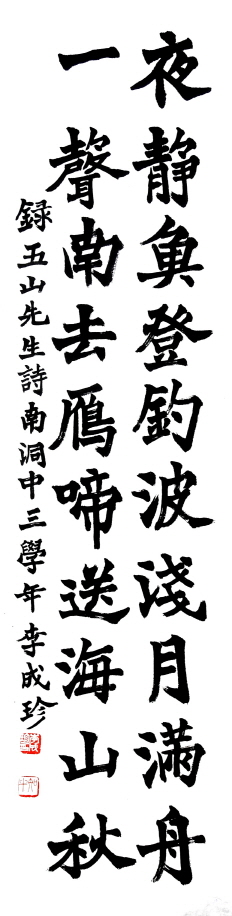 夜靜魚登釣波淺月滿舟
一聲南去鴈啼送海山秋
録五山先生詩南洞中三學年李成珍